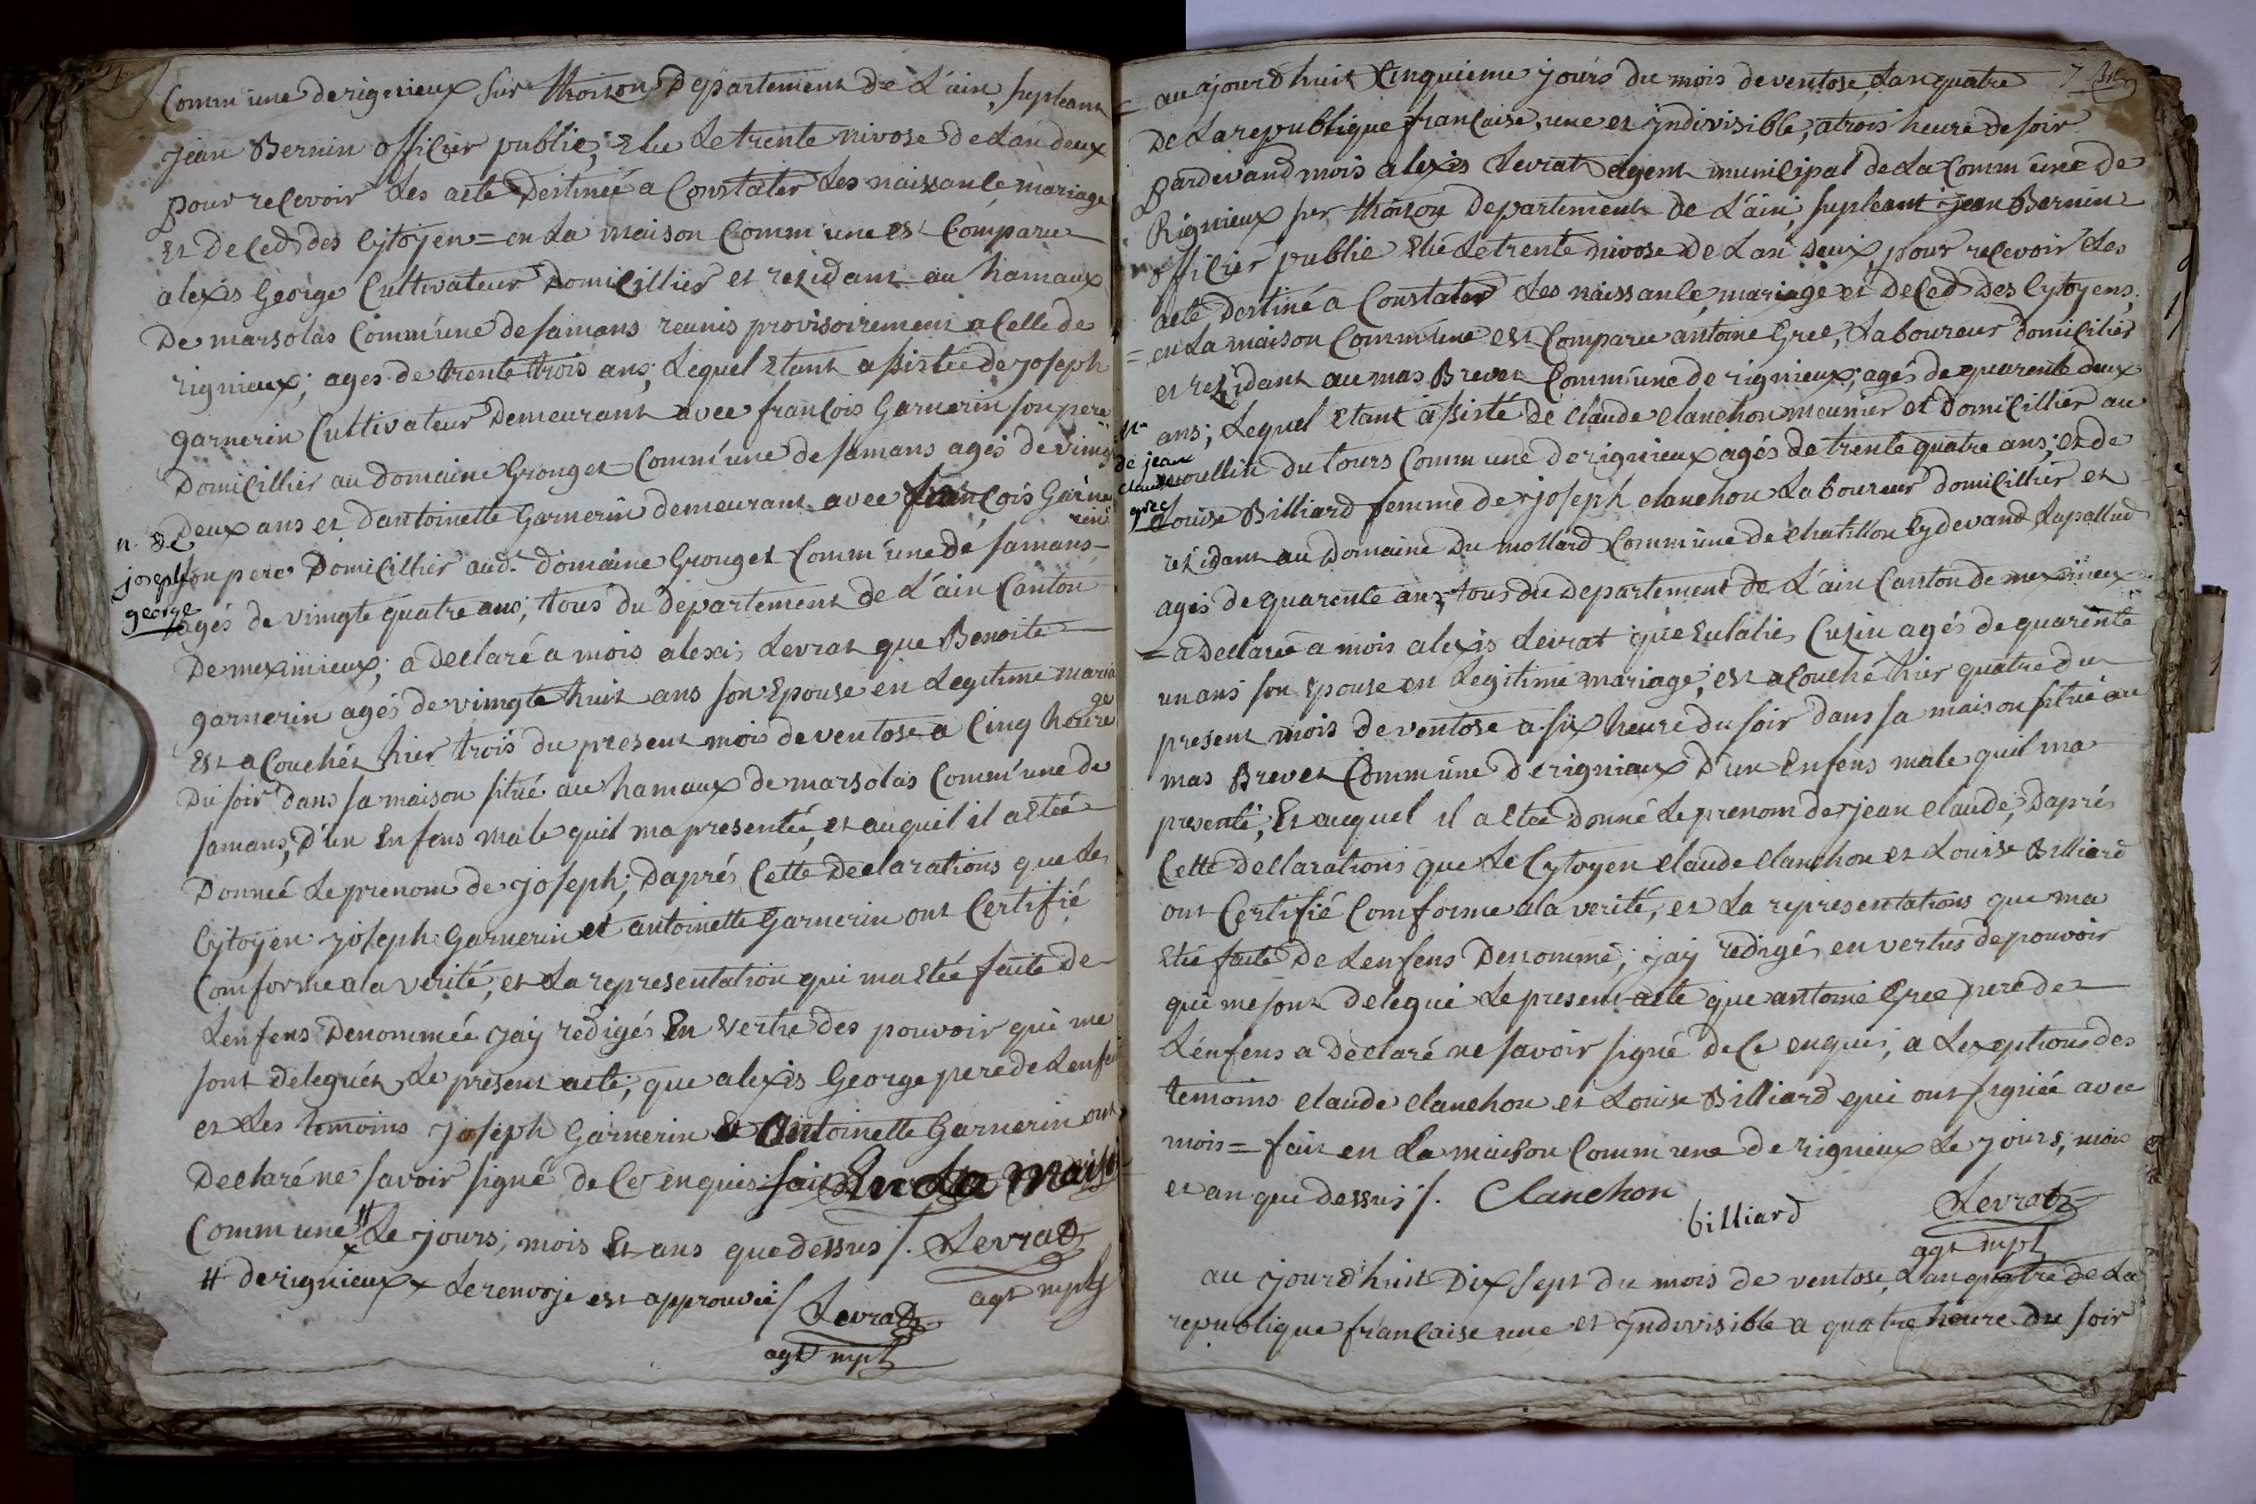 Comm'une de rignieux sur thoison Departement de L'ain, supleant
jean Bernin officier public, Elu Le trente nivose de Lan deux
pour recevoir Les acte Destinée a Constater Les naissance, mariage
Et de Ced des Cytoyen = en La maison Comm'une est Comparu
alexis George Cultivateur Domicillier et rezidant au hamaux
De marsolas Comm'une de samans reunis provisoirement a Celle de
rignieux; ages de trente trois ans; Lequel Etant assistée de joseph
garnerin Cultivateur Demeurant avec francois Garnerin son pere
Domicillier au domaine Gronget Comm'une de samans agés de vingt
Deux ans et d'antoinette Garnerin demeurant avec francois Garne
rin
n. de
joseph
george
son pere Domicillier aud. domaine Gronget Comm'une de samans
agés de vingte quatre ans; tous du departement de L'ain Canton
De meximieux; a declaré a mois alexis Levrat que Benoite
garnerin agés de vingte huit ans son Epouse en Legitime maria
ge
Est a Couchéz hier trois du present mois de ventose a Cinq heure
Du soir dans sa maison situé au hamaux de marsolas Comm'une de
samans; D'un Enfens male quil ma presentée, et auquel il a Etée
Donneé Le prenom de joseph; Daprés Cette Declarations que Les
Cytoyen joseph Garnerin et antoinette Garnerin ont Certifié
Comforme a la verité, et La representation qui ma Etée faite de
Lenfens Denommée jay redigés En Vertu des pouvoir qui me
sont Deleguéz Le present acte; que alexis George pere de Lenfen
et Les temoins joseph Garnerin Et Antoinette Garnerin ont
Declaré ne savoir signé de Ce enquis fait En La maison
Commune # Le jours; mois Et ans que dessus /. Levrat
agt mpl
# de rignieux x Le renvoje est approuvée / Levrat
agt mpl
7
au ajourd'huit Cinquieme jours du mois de ventose, Lan quatre
De La republique francaise, une et jndivisible, a trois heure de soir
pardevand mois alexis Levrat agent municipal de La Comm'une de
Rignieux sur thoison departement de L'ain, supleant jean Bernin
officier public Elié Le trente nivose de Lan deux, pour recevoir Les
acte destiné a Constater Les naissance, mariage et de Ced des Cytoyens;
= en La maison Comm'une est Comparu antoine Gree, Laboureur domicilier
et rezidant au mas Brevet Comm'une de rignieux; agés de quarente deux
ans; Lequel Etant assisté de claude clanchon meunier et Domicillier au
n.
de jean
claude
gree
moullin du tours Commune de rignieux agés de trente quatre ans; et de
Louise Billiard femme de joseph clanchon Laboureur domicillier et
rezidant au Domaine du mollard Comm'une de chatillon Cydevand Lapallud
agés de quarente ans, tous du Departement de L'ain Canton de meximieux
= a Declarée a mois alexis Levrat que Eulalie Cuzin agés de quarente
un ans son Epouse en Legitime mariage; est a Couché hier quatre du
present mois de ventose a six heure du soir dans sa maison situé au
mas Brevet Comm'une de rignieux D'un Enfens male quil ma
presenté; Et auquel il a Etée Donné Le prenom de jean claude; Daprés
Cette declarations que Le Cytoyen claude clanchon et Louise Billiard
ont Certifié Comforme a la verité, et La representations que ma
Etée faite De Lenfens Denommé; jay redigés en vertus de pouvoir
qui me sont delegué Le present acte que antoine Gree pere de
Lénfens a Dèclaré ne savoir signé de Ce enquis; a Lexeptions des
temoins claude clanchon et Louise Billiard qui ont signée avec
mois = fait en La maison Comm'une de rignieux Le jours; mois
et an que dessus /. Clanchon
billiard
Levrat
agt mpl
au jourd'huit Dix sept du mois de ventose, Lan quatre de La
republique francaise une et jndivisible a quatre heure du soir